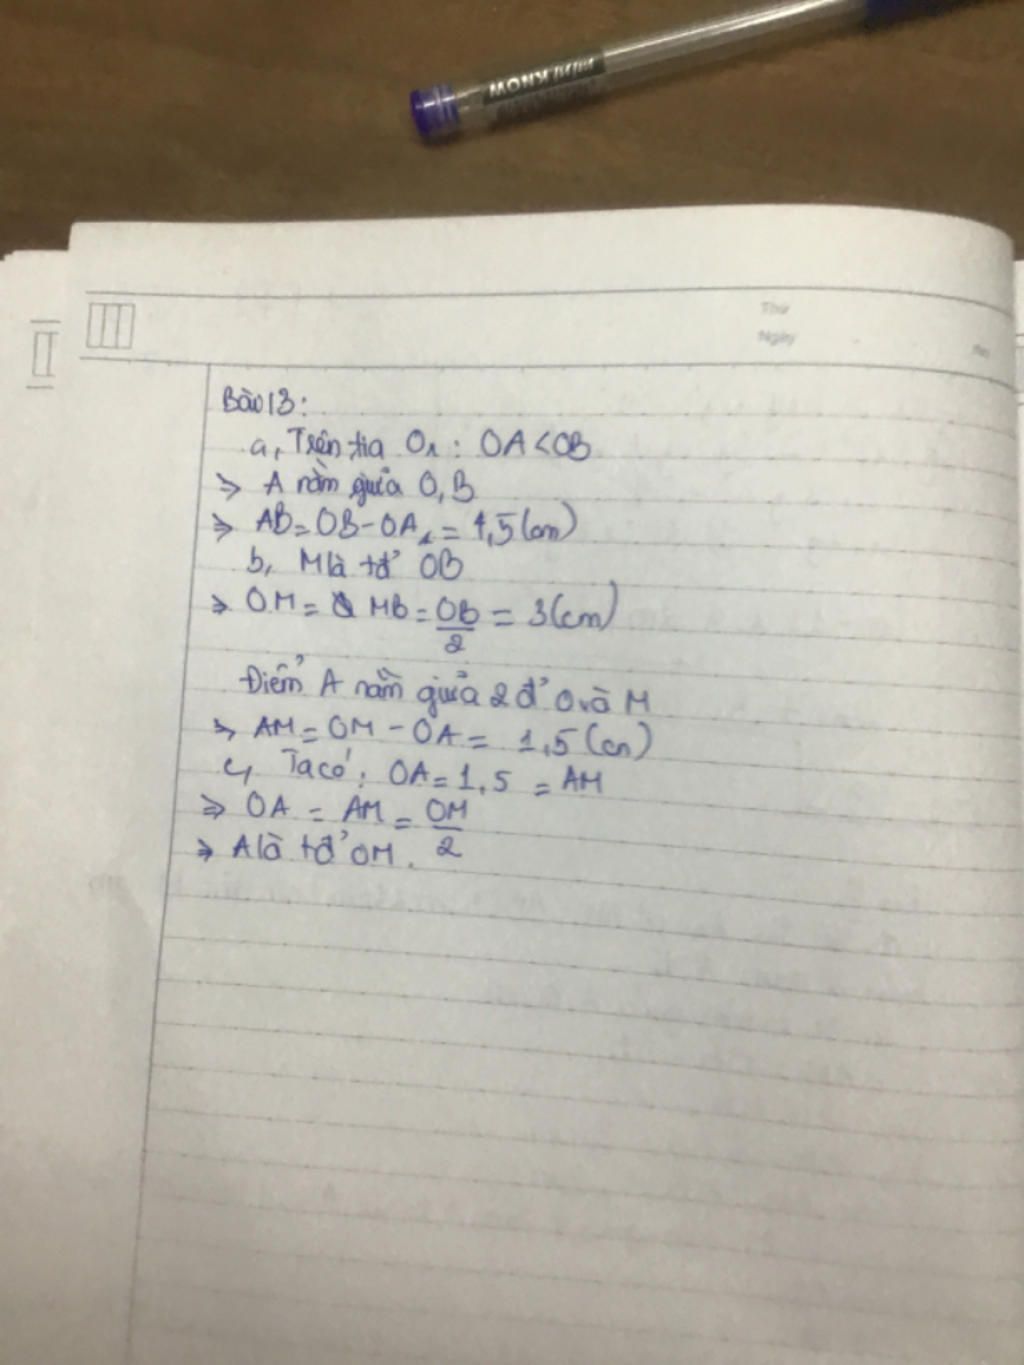 MONKNOW
Thứ
Ngày
Bài 13:
a, Trên tia Ox : OA < OB
=> A nằm giữa O, B
=> AB = OB - OA = 4,5 (cm)
b, M là tđ' OB
=> OM = MB = OB/2 = 3 (cm)
Điểm A nằm giữa 2 đ' O và M
=> AM = OM - OA = 1,5 (cm)
c, Ta có: OA = 1,5 = AM
=> OA = AM = OM/2
=> A là tđ' OM.